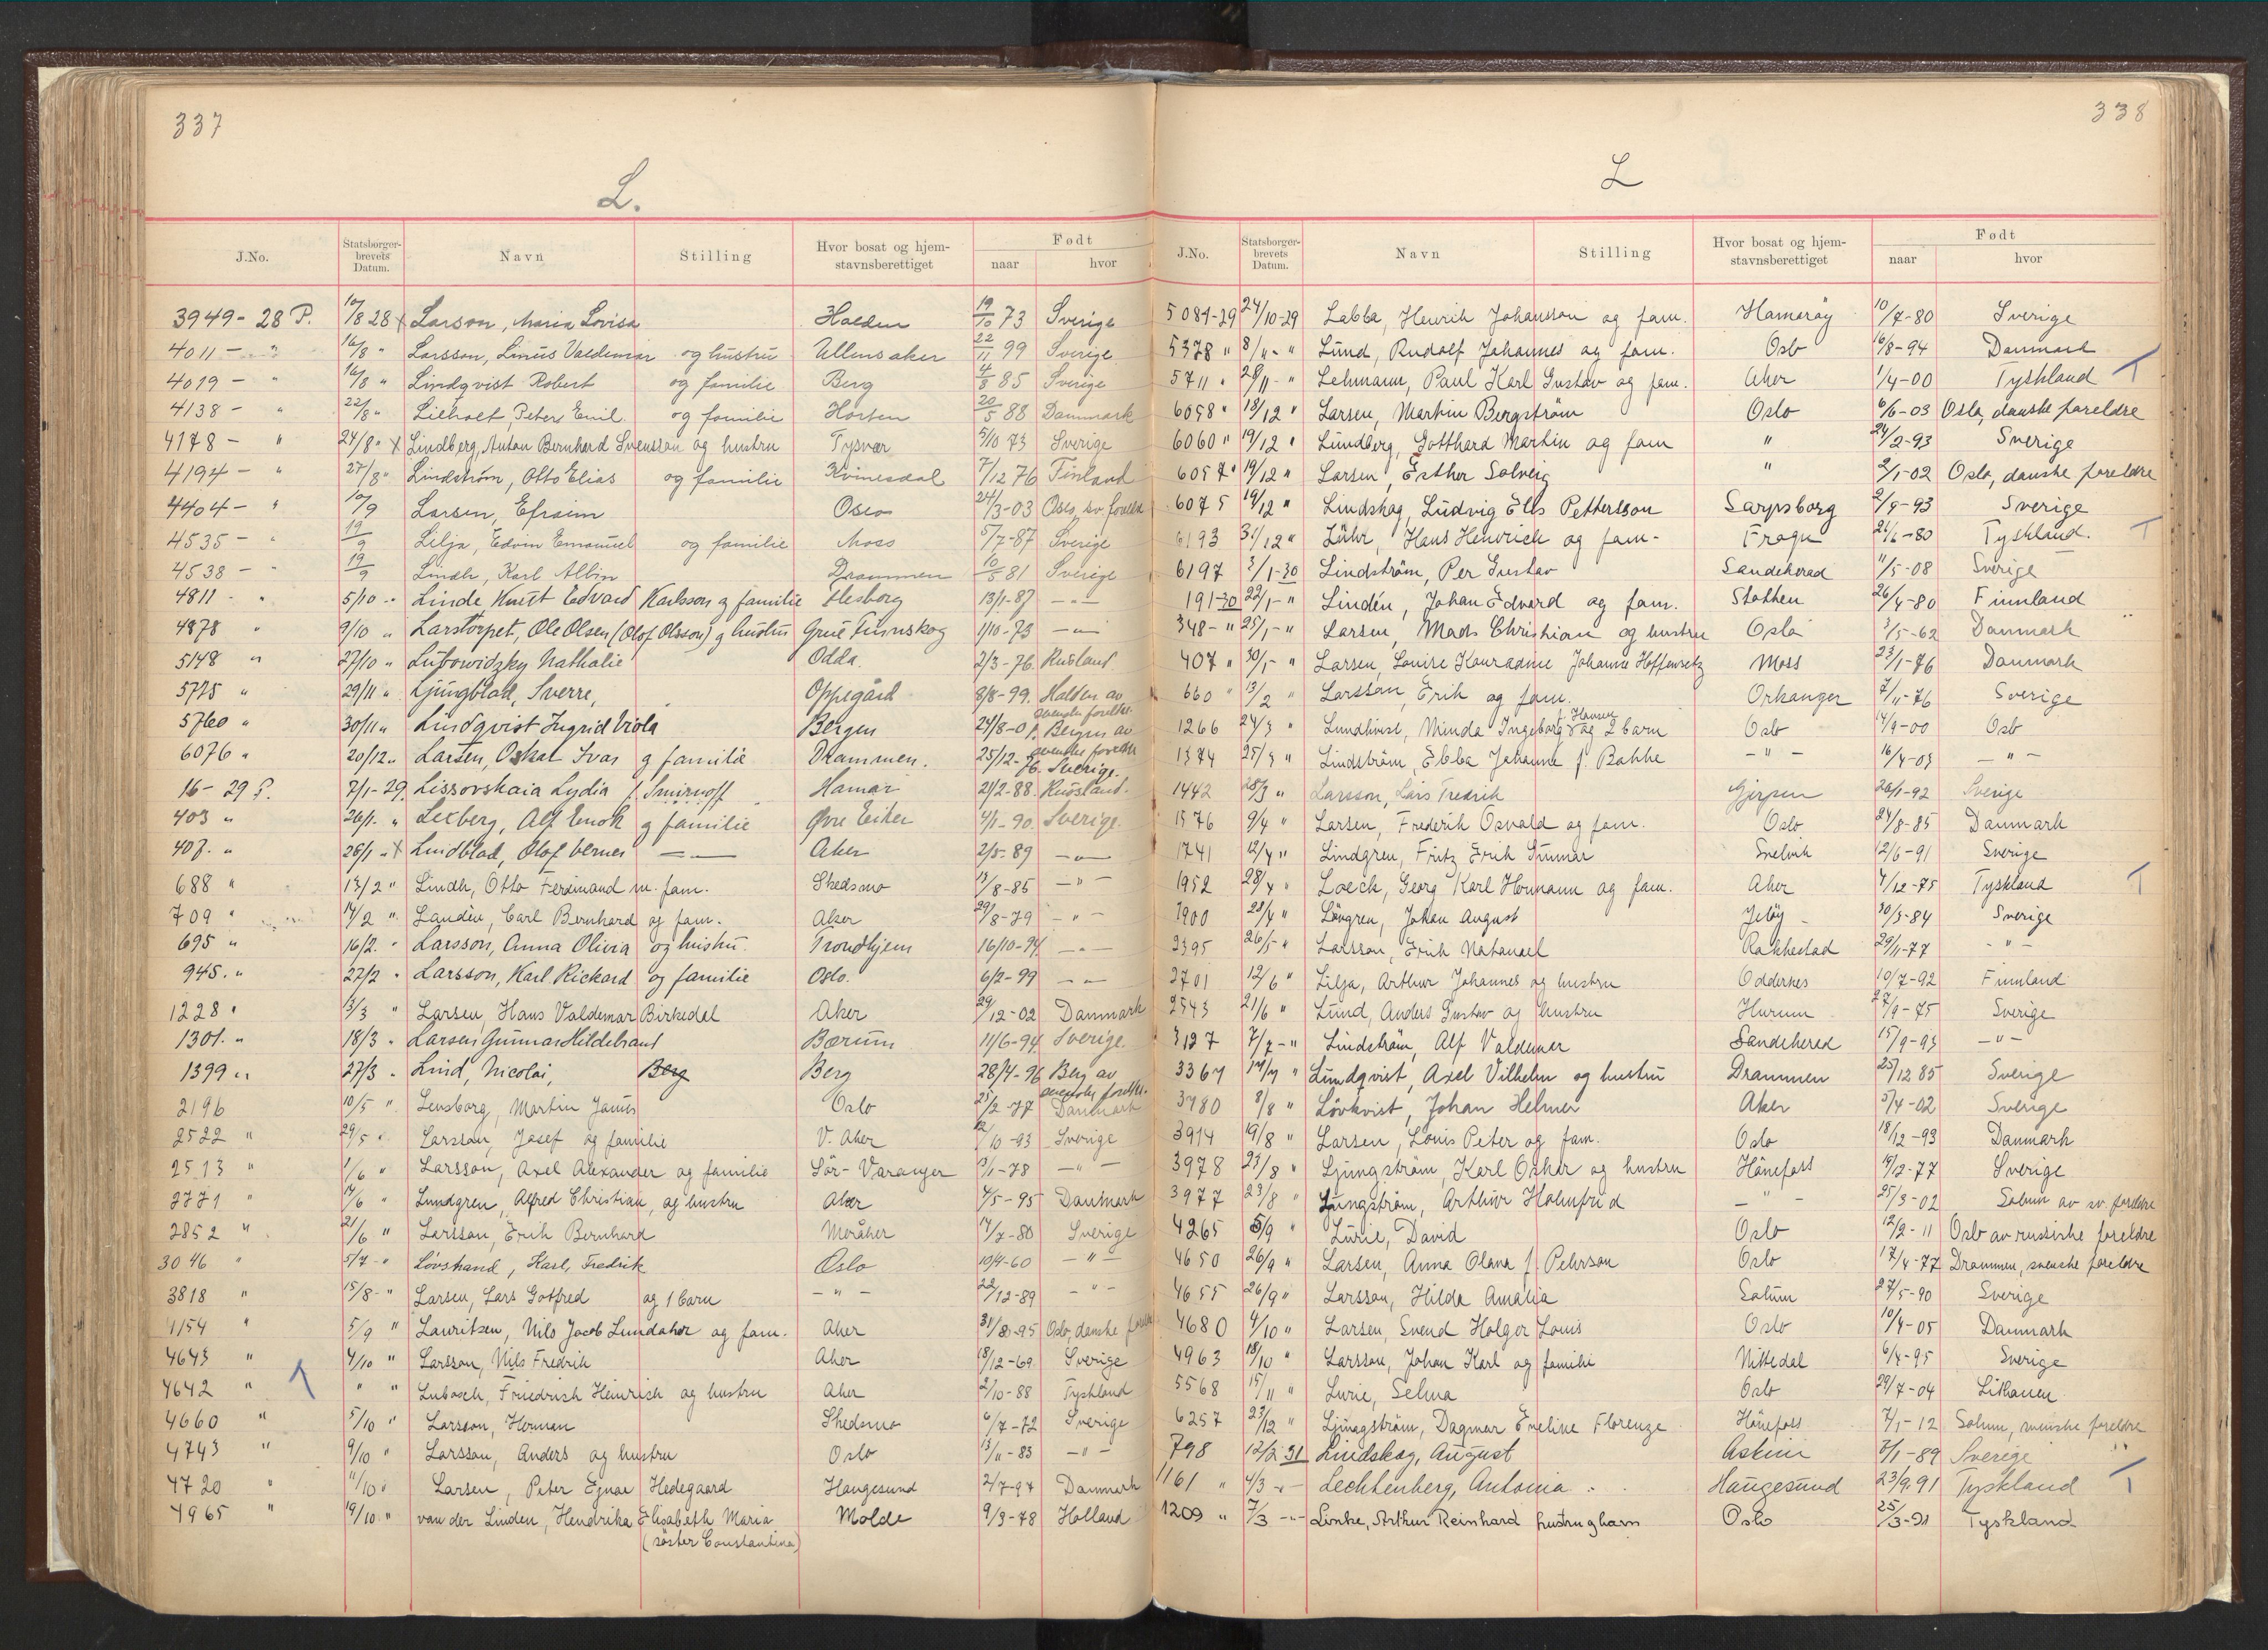 337
L.
J.No. Statsborgerbrevets Datum. Navn Stilling Hvor bosat og hjemstavnsberettiget Født naar hvor
3949 - 28 P. 10/8 28 x Larson, Maria Lovisa Halden 19/10 73 Sverige
4011 - " 16/8 " Larsson, Linus Valdemar og hustru Ullensaker 22/11 99 Sverige
4019 - " 16/8 " Lindqvist Robert og familie Berg 4/8 85 Sverige
4138 - " 22/8 " Lilholt, Peter Emil og familie Horten 20/5 88 Danmark
4178 - " 24/8 " x Lindberg, Anton Bernhard Svensson og hustru Tysvær 5/10 73 Sverige
4194 - " 27/8 " Lindstrøm, Otto Elias og familie Kvinesdal 7/12 76 Finland
4404 - " 10/9 Larsen, Efraim Oslo 24/3-03 Oslo, sv. foreldr
4535 - " 19/9 Lilja, Edvin Emanuel og familie Moss 5/7-87 Sverige
4538 - " 19/9 Lindh, Karl Albin Drammen 10/5 81 Sverige
4811 - " 5/10 - Linde, Knut Edvard Karlsson g familie 13/1-87 - " -
4878 " 9/10 " Larstorpet, Ole Olsen (Olof Olsson) g hustru Grue Finnskog 1/10-73 - " -
5148 " 27/10 " Lubowidzky Nathalie Odda. 2/3-76 Rusland.
5775 " 29/11 " Ljungblad, Sverre, Oppegård 8/8-99. Halden av svenske foreldre.
5760 " 30/11 " Lindqvist Ingrid Viola Bergen 24/8-01. Bergen av svenske foreldre
6076 " 20/12 " Larsen, Oskar Ivar g familie Drammen. 25/12-76. Sverige.
16 - 29 P. 7/1-29. Lissovskaia Lydia f. Smirnoff Hamar 21/2-88. Rusland.
403 " 26/1. " Lexberg, Alf Enok g familie Øvre Eiker 4/1-90. Sverige.
407. " 26/1 " x Lindblad, Olof Verner - " - Aker 2/5-89 - " -
688 " 13/2 " Lindh, Otto Ferdinand m. fam. Skedsmo 13/8-85 - " -
709 " 14/2 " Landén, Carl Bernhard og fam. Aker 29/8-79 - " -
695 " 16/2. " Larsson, Anna Olivia og hustru. Trondhjem 16/10-94 - " -
945. " 27/2 " Larsson, Karl Rickard og familie Oslo. 6/2-99 - " -
1228 " 13/3 " Larsen, Hans Valdemar Birkedal Aker 29/12-02 Danmark
1301. " 18/3 " Larsen Gunnar Hildebrand Bærum 11/6-94 Sverige.
1399 " 27/3 " Lind, Nicolai, Berg Berg 28/4-96 Berg av svenske foreldre.
2196 10/5 " Lensborg, Martin James Oslo 25/2-77 Danmark
2522 " 29/5 " Larsson, Josef og familie V. Aker 12/10-93 Sverige
2513 " 1/6 " Larsson, Axel Alexander og familie Sör-Varanger 13/1-78 - " -
2771 " 14/6 " Lundgren, Alfred Christian, og hustru Aker 4/5-95 Danmark
2852 " 21/6 " Larsson, Erik Bernhard Meråker 14/7-80 Sverige
3046 " 5/7 - " Lövstrand, Karl Fredrik Oslo 10/4-60 - " -
3818 " 15/8 - " Larsen, Lars Gotfred og 1 barn - " - 22/12-89 - " -
4154 " 5/9 " Lauritzen, Nils Jacob Lundahor og fam. Aker 31/8-95 Oslo, danske foreldre
4643 " 4/10 " Larsson, Nils Fredrik Aker 18/12-69. Sverige
4642 " " " Lubosch, Friedrich Heinrich og hustru Aker 2/10-88 Tyskland
4660 " 5/10 " Larsson, Herman Skedsmo 6/7-72 Sverige
4743 " 9/10 " Larsson, Anders og hustru Oslo 13/11-83 - " -
4720 " 11/10 " Larsen, Peter Ejnar Hedegaard Haugesund 2/7-94 Danmark
4965 " 19/10 " van der Linden, Hendrika Elisabeth Maria Molde 9/3-78 Holland
(söster Constantina)
338
L
J.No. Statsborgerbrevets Datum. Navn Stilling Hvor bosat og hjemstavnsberettiget Født naar hvor
5084-29 24/10-29 Labba, Henrik Johansson og fam. Hamaröy 10/7-80 Sverige
5378 " 8/11 - " Lund, Rudolf Johannes og fam. Oslo 16/8-94 Danmark
5711 " 28/11 - " Lehmann, Paul Karl Gustav og fam. Aker 1/4-00 Tyskland T
6058 " 18/12 " Larsen, Martin Bergström Oslo 6/6-03 Oslo, danske foreldre
6060 " 19/12 " Lundberg, Gotthard Martin og fam " 24/2-93 Sverige
6057 " 19/12 " Larsen, Esther Solveig " 2/1-02 Oslo, danske foreldre
6075 19/12 " Lindskog, Ludvig Elis Pettersson Sarpsborg 2/9-93 Sverige
6193 31/12 " Lühr, Hans Henrich og fam - Frogn 21/6-80 Tyskland. T
6197 3/1-30 Lindström, Per Gustav Sandeherad 11/5-08 Sverige
191-30 22/1 - " Lindén, Johan Edvard og fam. Stokken 26/4-80 Finnland
348 - " 25/1 - " Larsen, Mads Christian og hustru Oslo 3/5-62 Danmark
407 " 30/1 - " Larsen, Louise Konradine Johanne Moss 23/1-76 Danmark
660 " 13/2 " Larsson, Erik og fam. Orkanger 7/11-76 Sverige
1266 24/3 " Lundkvist, Minda Ingeborg f. Hansen og 2 barn Oslo 14/9-00 Oslo
1374 25/3 " Lindström, Ebba Johanne f. Bakke - " - 16/4-03 - " -
1442 28/3 " Larsson, Lars Fredrik Gjerpen 20/1-92 Sverige
1576 9/4 " Larsen, Frederik Osvald og fam. Oslo 24/8-85 Danmark
1741 12/4 " Lindgren, Fritz Erik Gunnar Svelvik 12/6-91 Sverige
1952 28/4 " Loeck, Georg Karl Hermann og fam. Aker 4/12-75 Tyskland T
1900 23/4 " Lövgren, Johan August Jelöy - 30/3-84 Sverige
2395 26/5 " Larsson, Erik Natanael Rakkestad 29/11-77 - " -
2701 12/6 " Lilja, Arthur Johannes og hustru Oddernes 10/7-92 Finnland
2543 21/6 " Lund, Anders Gustav og hustru Hurum 27/9-75 Sverige
3127 7/7 - " Lindström, Alf Valdemar Sandeherad 15/9-93 - " -
3367 17/7 " Lundqvist, Axel Vilhelm og hustru Drammen 25/12 85 Sverige
3780 8/8 " Lövkvist, Johan Helmer Aker 5/4-02 Sverige
3914 19/8 " Larsen, Louis Peter og fam. Oslo 18/12-93 Danmark
3978 23/8 " Ljungström, Karl Oskar og hustru Hönefoss 19/2-77 Sverige
3977 23/8 " Ljungström, Arthur Holmfrid - " - 25/3-02 Solum av sv. foreldre
4265 5/9 " Lurie, David Oslo 12/2-11 Oslo av russiske foreldre
4650 26/9 " Larsen, Anna Olava f. Pehrson Oslo 17/4-77 Drammen, svenske foreldre
4655 26/9 " Larsson, Hilda Amalia Solum 27/5-90 Sverige
4680 4/10 " Larsen, Svend Holger Louis Oslo 10/4-05 Danmark
4963 18/10 " Larsson, Johan Karl og familie Nittedal 6/4-95 Sverige
5568 15/11 " Lurie, Selma Oslo 29/7-04 Litauen.
6257 23/12 " Ljungström, Dagmar Eveline Florenze Hönefoss 7/1-12 Solum, svenske foreldre
798 12/2 31 Lindskog, August Askim 2/1-89 Sverige
1161 " 4/3 - " - Lechtenberg, Antonia Haugesund 23/9.91 Tyskland T
1209 " 7/3 - " - Linke, Arthur Reinhard hustru g barn Oslo 25/3-91 Tyskland